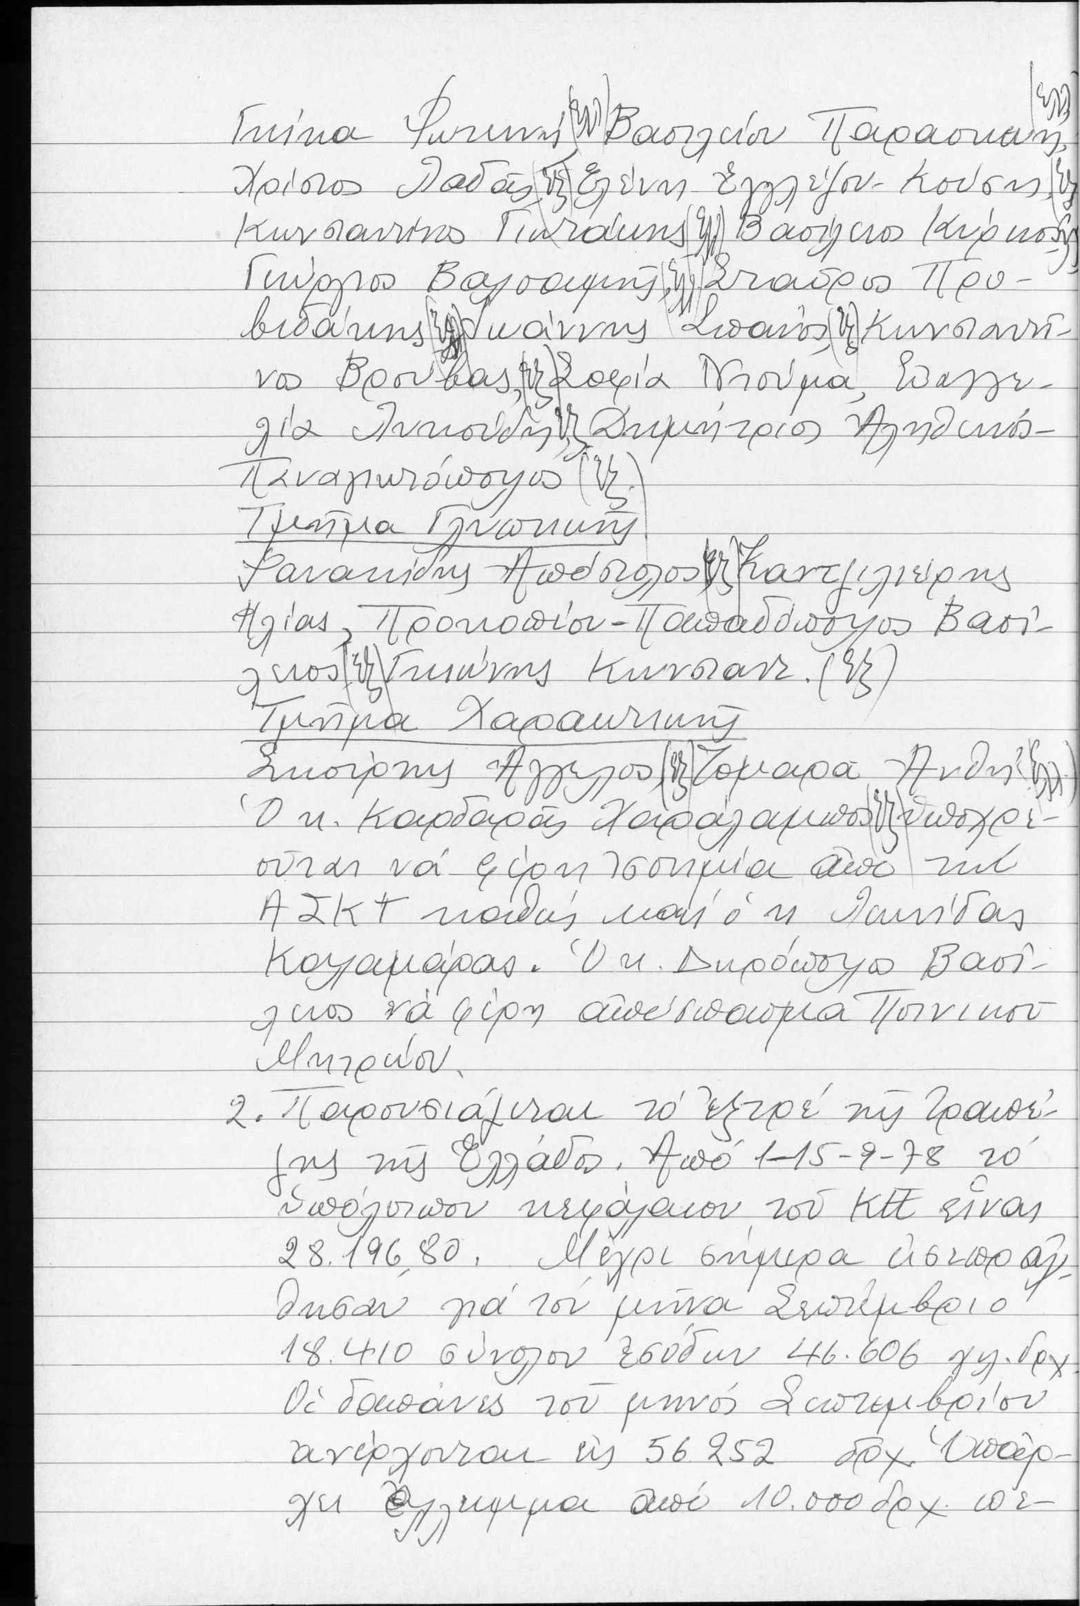 Γκίκα Φωτεινή (ἐλ) Βασιλείου Παρασκευή, (ἐλλ)
Χρίστος Λαδᾶς, (ἐξ) Ἑλένη Ἐγγλέζου-Κούση, (ἐξ)
Κωνσταντίνος Γιωτάκης (ἐλ) Βασίλειος Κύρκος
Γεώργιος Βαλσαμῆς, (ἐλ) Σταῦρος Προ-
βιδάκης (ἐλ) Ἰωάννης Σπανός, (ἐξ) Κωνσταντί-
νος Βρούβας, (ἐξ) Σοφία Ντούμα, Εὐαγγε-
λία Λυκούδη, ἐξ, Δημήτριος Ἀληθινός-
Παναγιωτόπουλος (ἐξ.
Τμῆμα Γλυπτικῆς
Φανακίδης Ἀπόστολος (ἐξ) Καντζιλιέρης
Ἠλίας, Προκοπίου-Παπαδόπουλος Βασί-
λειος (ἐξ) Γκιώνης Κωνσταντ. (ἐξ)
Τμῆμα Χαρακτικῆς
Σκούρκης Ἄγγελος, (ἐξ) Τομαρᾶ Ἀνθή (ἐλλ.)
Ὁ κ. Καρδαρᾶς Χαράλαμπος (ἐξ) ὑποχρε-
οῦται νά φέρη ἰσοτιμία ἀπό τήν
ΑΣΚΤ καθώς καί ὁ κ Λεωνίδας
Καλαμάρας. Ὁ κ. Δηρόπουλος Βασί-
λειος νά φέρη ἀπόσπασμα Ποινικοῦ
Μητρώου.
2. Παρουσιάζεται τό ἐξτρέ τῆς Τραπέ-
ζης τῆς Ἑλλάδος. Ἀπό 1-15-9-78 τό
ὑπόλοιπον κεφάλαιον τοῦ ΚΠ εἶναι
28.196,80. Μέχρι σήμερα εἰσεπράχ-
θησαν γιά τόν μῆνα Σεπτέμβριο
18.410 σύνολον ἐσόδων 46.606 χιλ. δρχ
Οἱ δαπάνες τοῦ μηνός Σεπτεμβρίου
ἀνέρχονται εἰς 56.252 δρχ. Ὑπάρ-
χει ἔλλειμμα ἀπό 10.000 δρχ. πε-